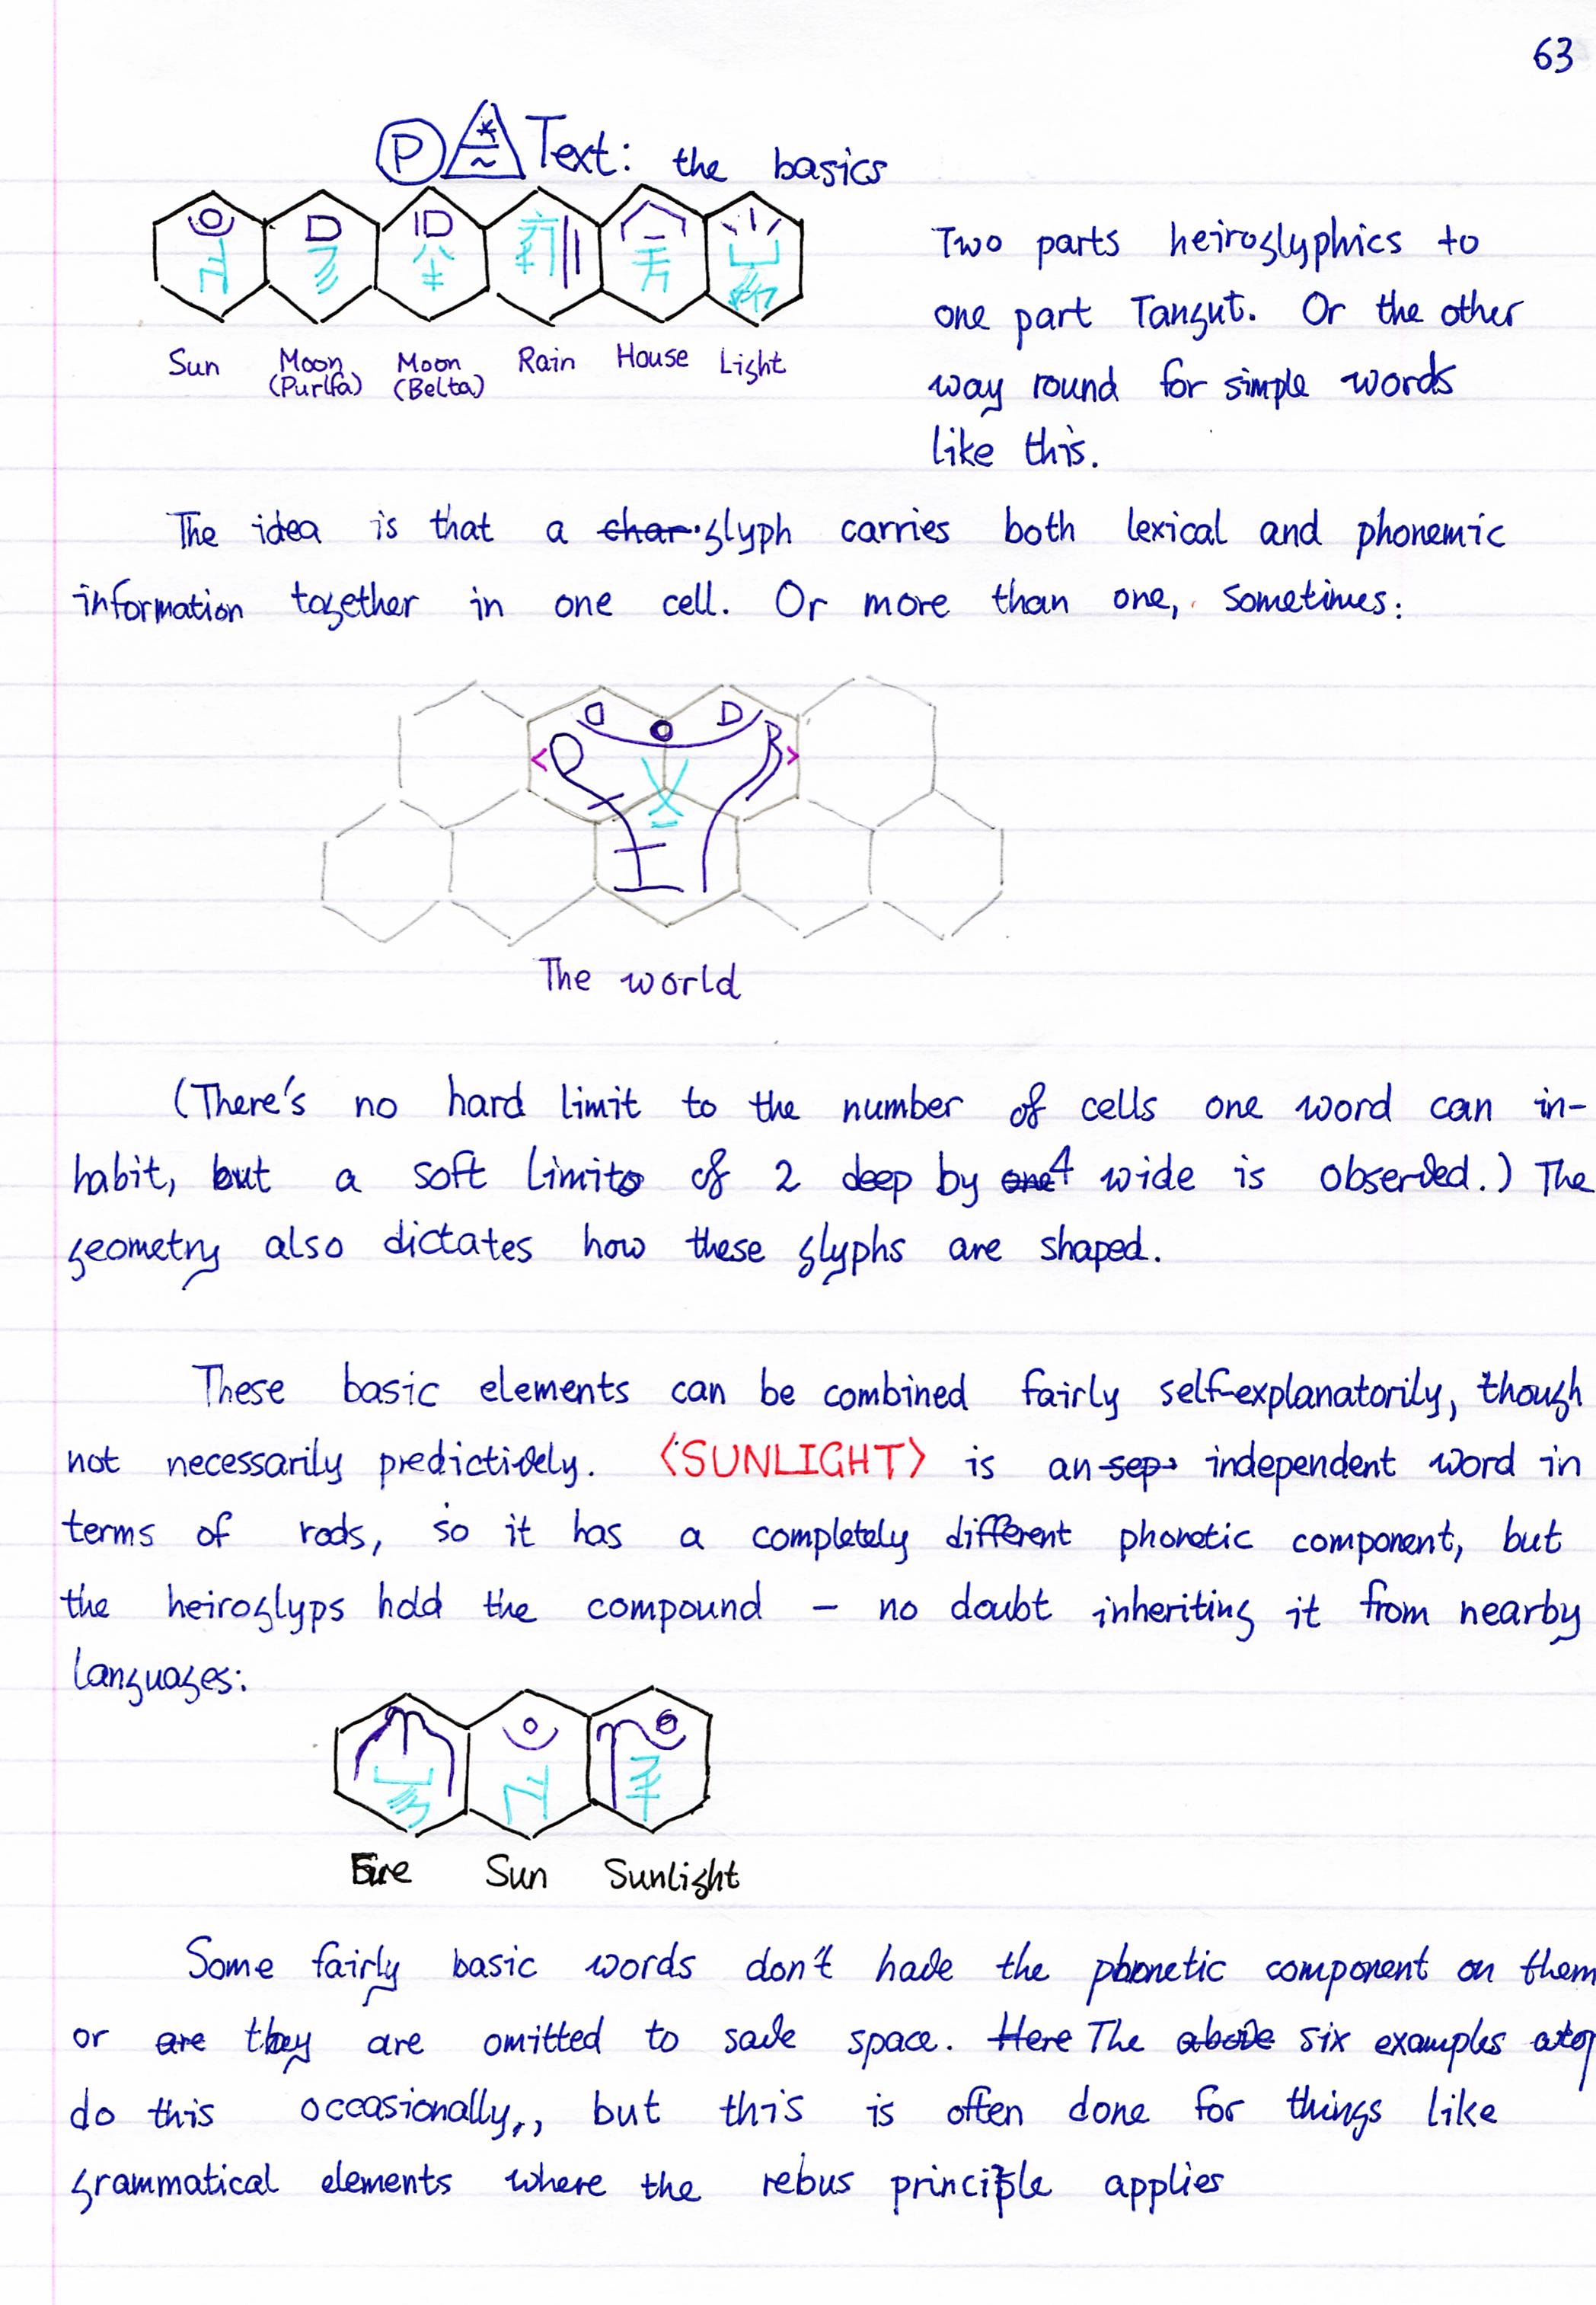 63
P Text: the basics
Sun Moon (Purlfa) Moon (Belta) Rain House Light
Two parts heiroglyphics to
one part Tangut. Or the other
way round for simple words
like this.
The idea is that a char glyph carries both lexical and phonemic
information together in one cell. Or more than one, sometimes:
The world
(There's no hard limit to the number of cells one word can in-
habit, but a soft limit of 2 deep by one 4 wide is observed.) The
geometry also dictates how these glyphs are shaped.
These basic elements can be combined fairly self-explanatorily, though
not necessarily predictively. <SUNLIGHT> is an sep independent word in
terms of rods, so it has a completely different phonetic component, but
the heiroglyps hold the compound – no doubt inheriting it from nearby
languages:
Fire Sun Sunlight
Some fairly basic words don't have the phonetic component on them
or are they are omitted to save space. Here The above six examples atop
do this occasionally,, but this is often done for things like
grammatical elements where the rebus principle applies